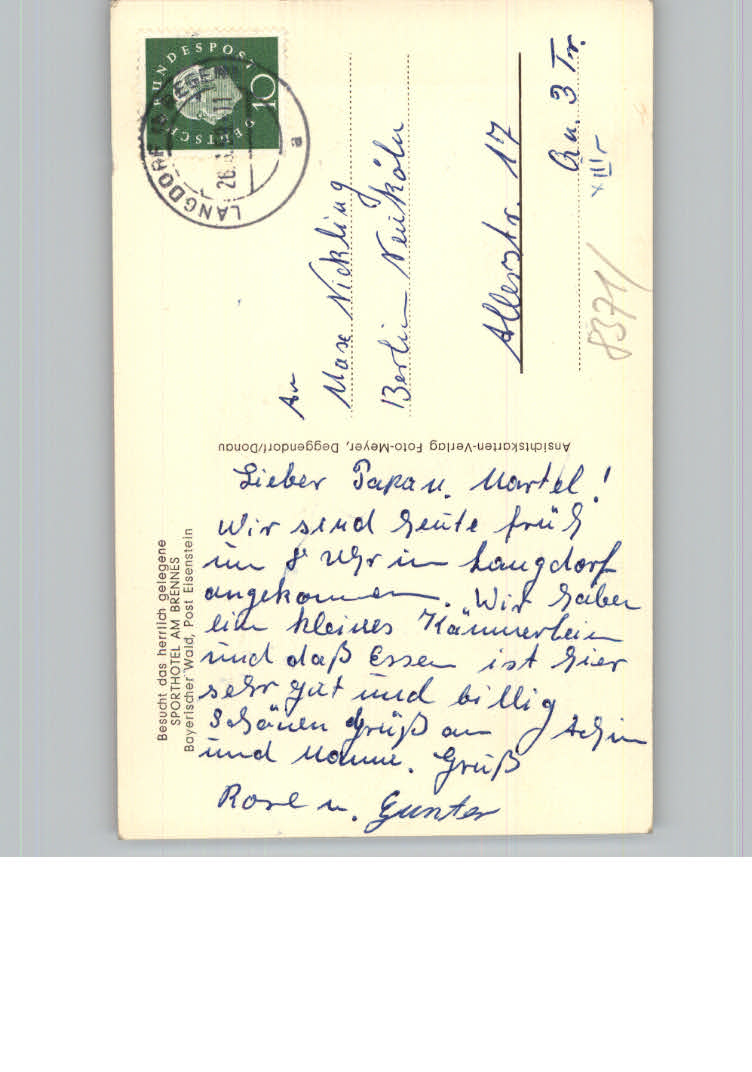 Besucht das herrlich gelegene
SPORTHOTEL AM BRENNES
Bayerischer Wald, Post Eisenstein
Lieber Papa u. Martel!
Wir sind heute früh
um 8 Uhr in Langdorf
angekommen. Wir haben
ein kleines Kämmerlein
und daß Essen ist hier
sehr gut und billig
Schönen Gruß an Achim
und Manne. Gruß
Rosl u. Gunter
Ansichtskarten-Verlag Foto-Meyer, Deggendorf/Donau
DEUTSCHE BUNDESPOST
10
LANGDORF
26.
11
a
An
Max Nickling
Berlin Neukölln
Allerstr. 17
Qu. 3 Tr.
XIII
8371/